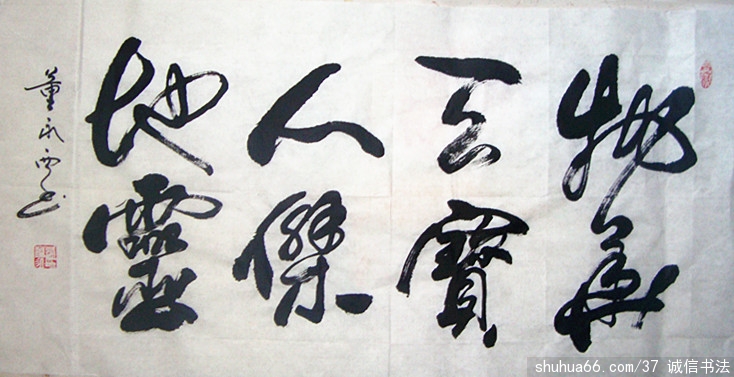 物华
天寶
人傑
地靈
董永西书
shuhua66.com/37 诚信书法